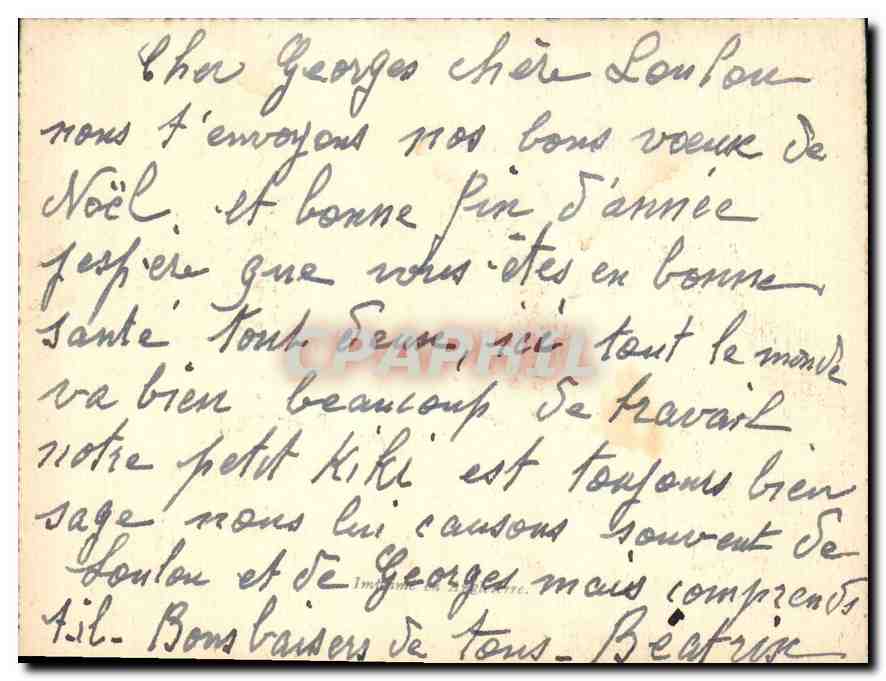 Cher Georges chère Loulou
nous t'envoyons nos bons vœux de
Noël et bonne fin d'année
j'espère que vous êtes en bonne
santé tout deux, ici tout le monde
va bien beaucoup de travail
notre petit Kiki est toujours bien
sage nous lui causons souvent de
Loulou et de Georges mais comprends
t.il - Bons baisers de tous - Béatrix
CPAPHIL
Imprimé en